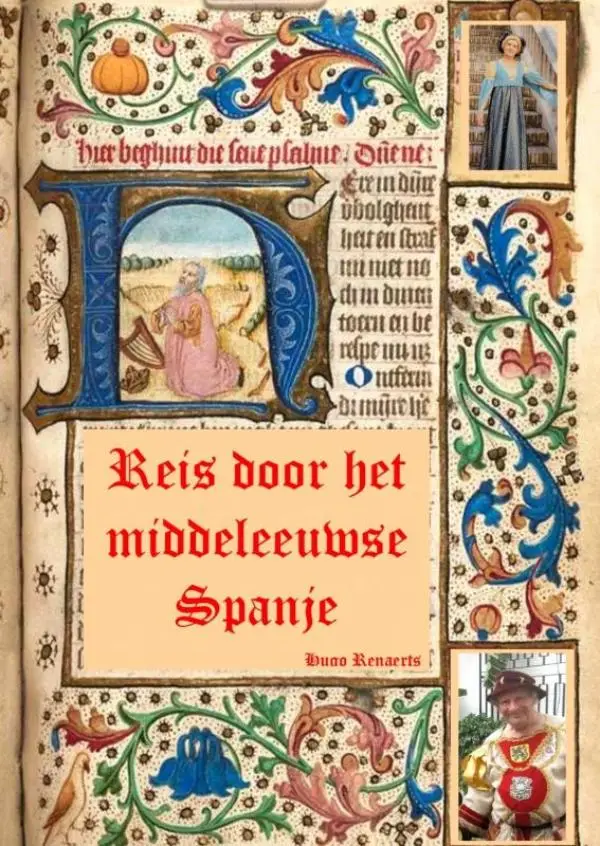 hier beghint die seve psalme. Dñe ne:
Ere in dijne
vbolghent
heit en straf
mi niet no
ch in dinen
toern en be
respe mi niz
Ontferm
di mijnre
Reis door het
middeleeuwse
Spanje
Hugo Renaerts